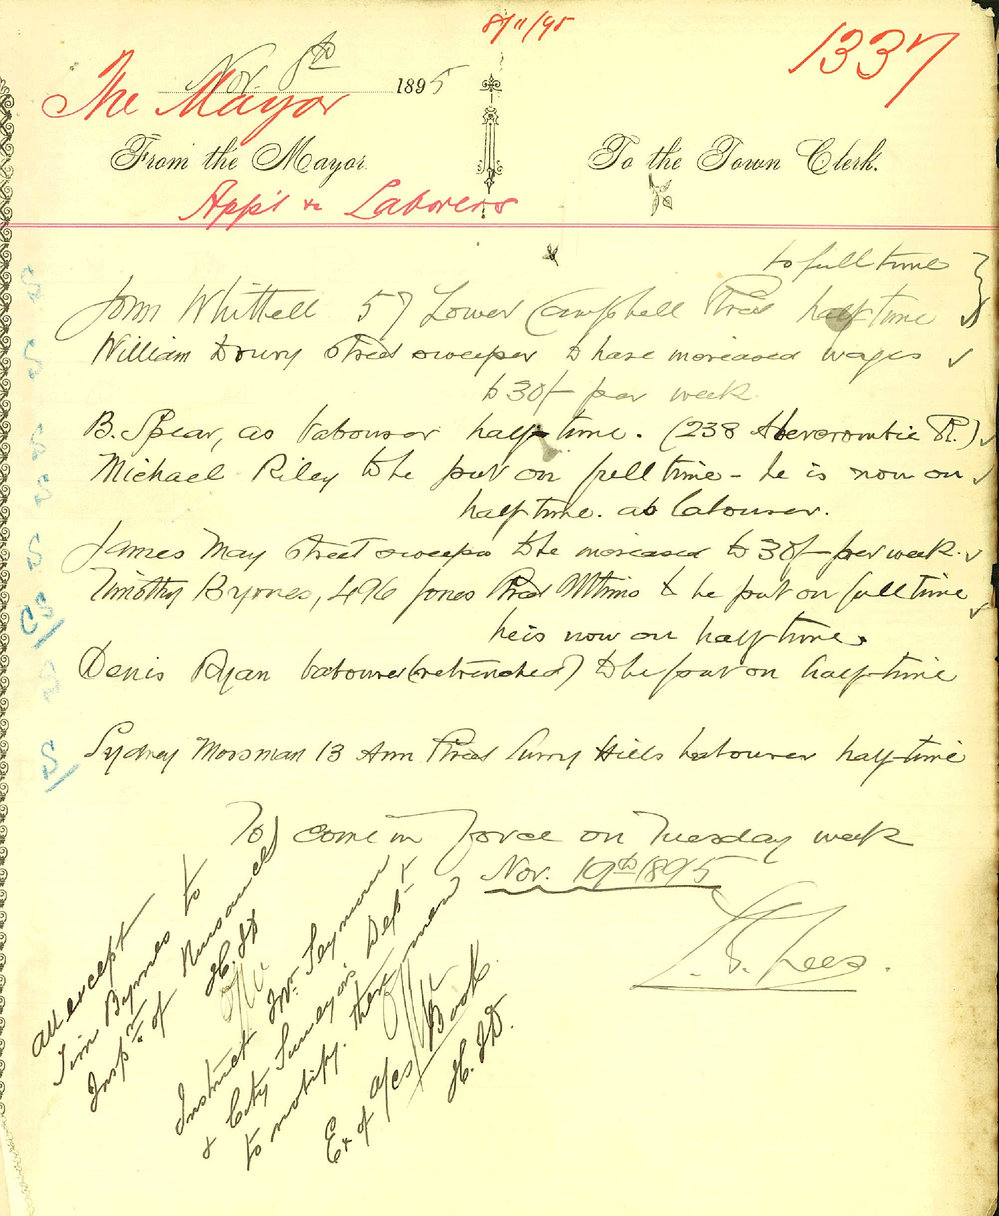 8/11/95
1337
Nov. 8th 1895
The Mayor
From the Mayor.
To the Town Clerk.
App's & Laborers
to full time
S John Whittell 57 Lower Campbell Street half time
S William Drury Street sweeper to have increased wages
to 30/- per week.
S B. Spear, as labourer half-time. (238 Abercrombie St.)
S Michael Riley to be put on full time - he is now on
half time. as labourer.
S James May Street sweeper to be increased to 30/- per week.
CS Timothy Byrnes, 496 Jones Street to be put on full time
he is now on half time.
S Denis Ryan labourer (retrenched) to be put on half-time
S Sydney Mossman 13 Ann Street Surry Hills labourer half-time
To come in force on Tuesday week
Nov. 19th 1895
All except
Tim Byrnes to
Inspr. of Nuisances
H.J.D.
Instruct Mr. Seymour
& City Surveyor's Dept.
to notify these men
Ex of a/cs Book
H.J.D.
Lees.